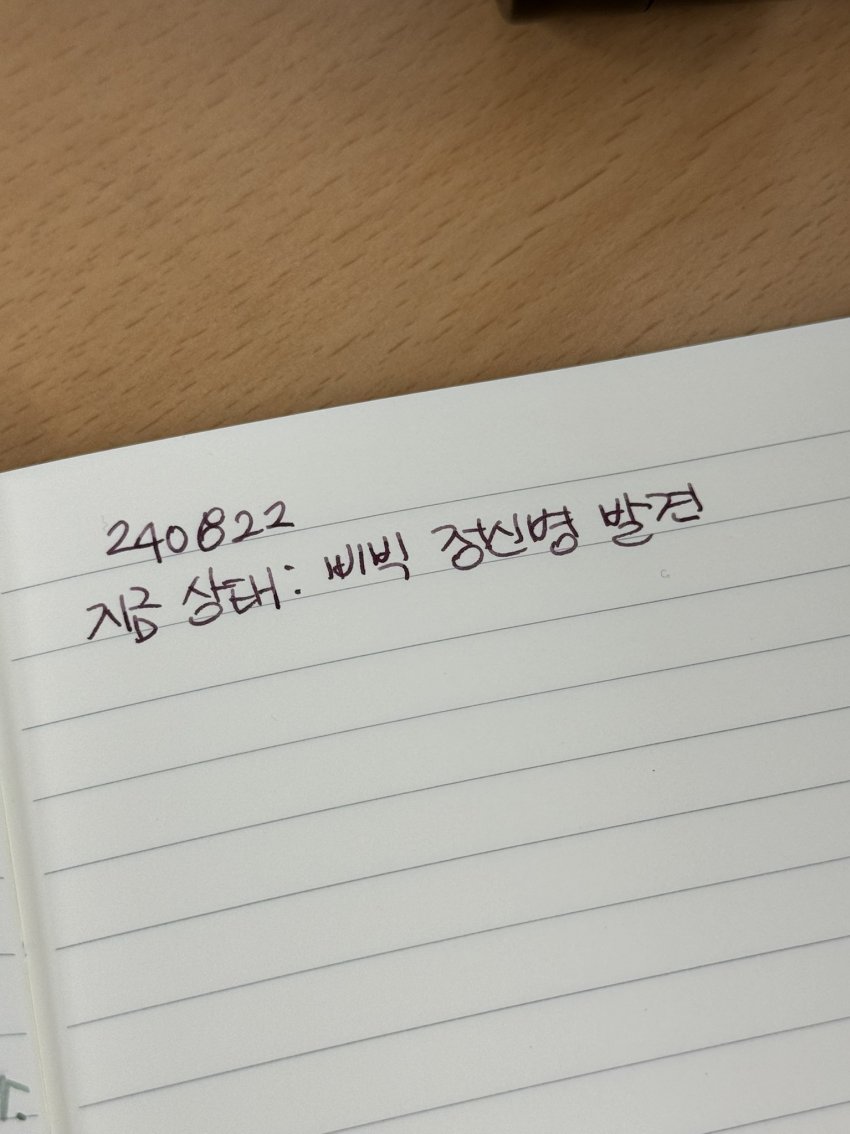 240822
지금 상태: 삐빅 정신병 발견